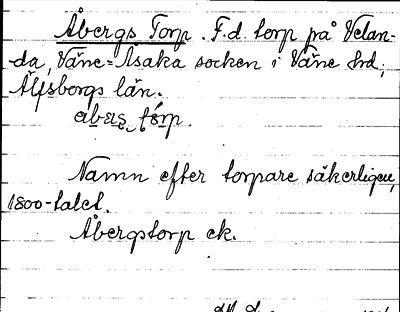 Åbergs Torp. F.d. torp på Velan-
da, Väne-Åsaka socken i Väne hrd,
Älfsborgs län.
Namn efter torpare säkerligen,
1800-talet.
Åbergstorp ek.